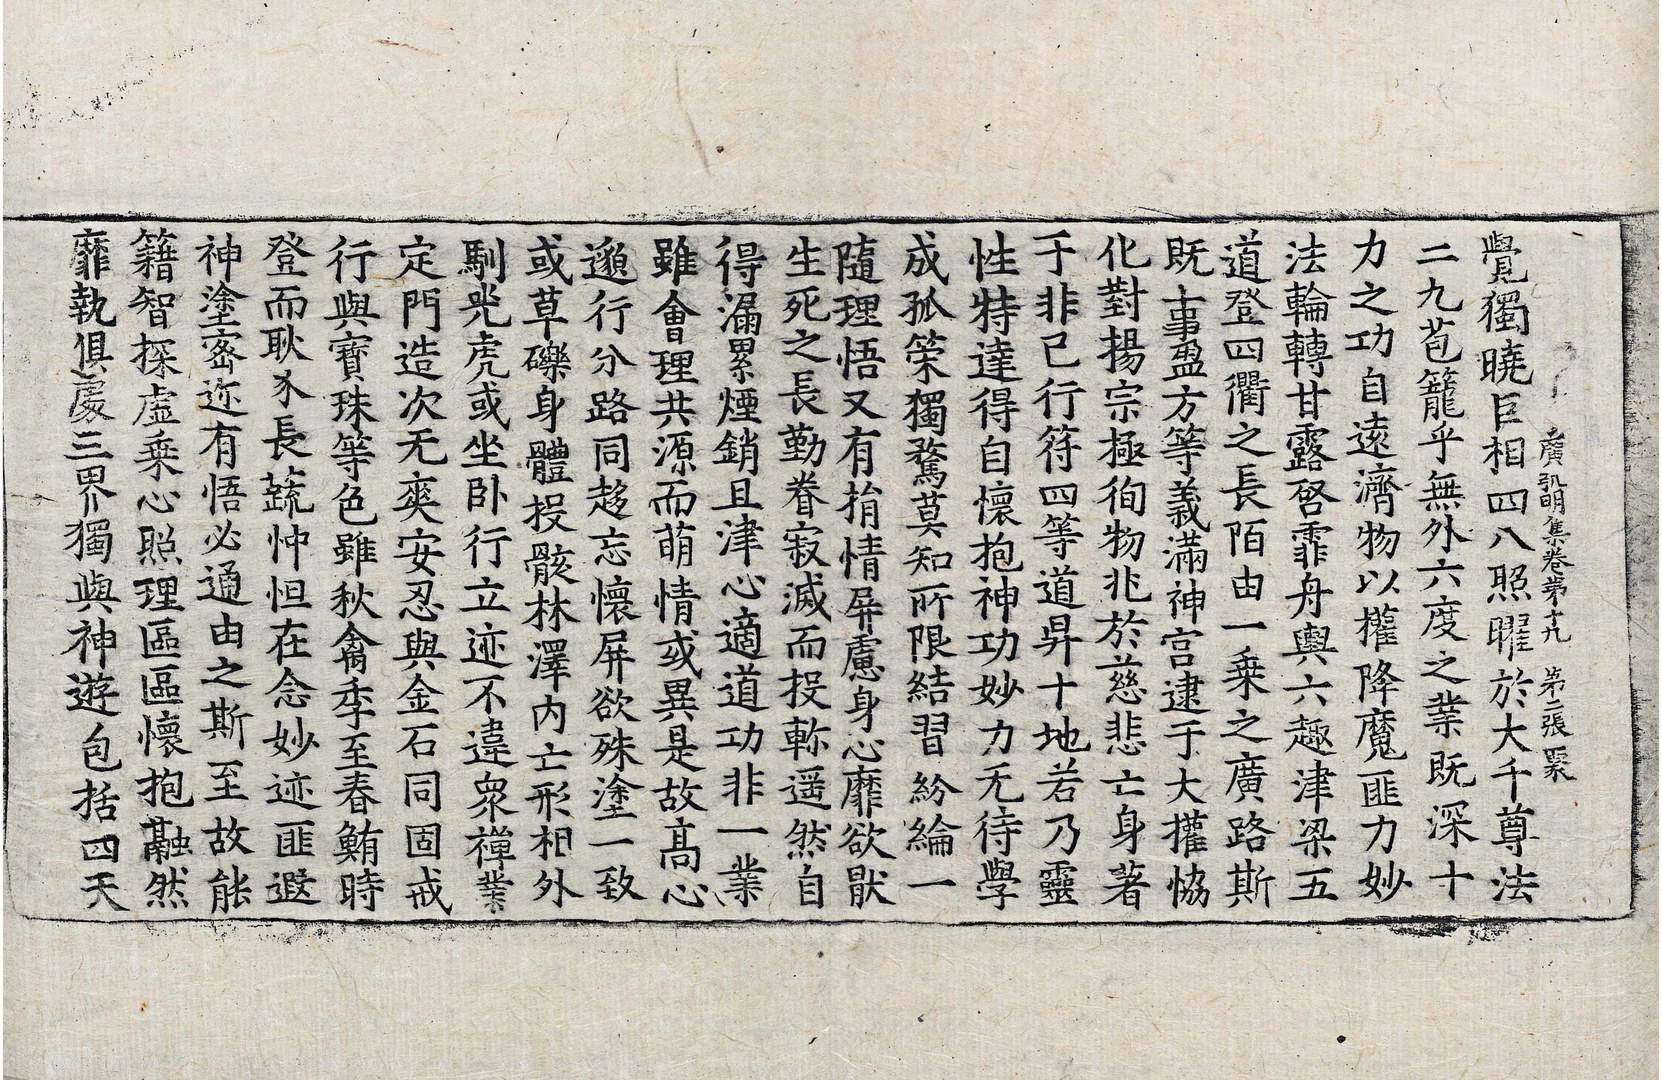 覺獨曉巨相四八照曜於大千尊法
廣弘明集卷第十九 第二張 眾
二九苞籠乎無外六度之業既深十
力之功自遠濟物以權降魔匪力妙
法輪轉甘露啓霏舟輿六趣津梁五
道登四衢之長陌由一乗之廣路斯
既事盈方等義滿神宫逮于大權恊
化對揚宗極徇物兆於慈悲亡身著
于非己行符四等道昇十地若乃靈
性特達得自懷抱神功妙力无待學
成孤筞獨騖莫知所限結習紛綸一
隨理悟又有捐情屏慮身心靡欲猒
生死之長勤眷寂滅而投軫遥然自
得漏累煙銷且津心適道功非一業
雖會理共源而萌情或異是故髙心
邈行分路同趍忘懷屏欲殊塗一致
或草礫身體投骸林澤内亡形相外
馴兕虎或坐卧行立迹不違衆禪業
定門造次无爽安忍與金石同固戒
行與寳珠等色雖秋禽季至春鮪時
登而耿介長蔬忡怛在念妙迹匪遐
神塗宻迩有悟必通由之斯至故能
籍智探虚乗心照理區區懷抱融然
靡執俱處三界獨與神遊包括四天